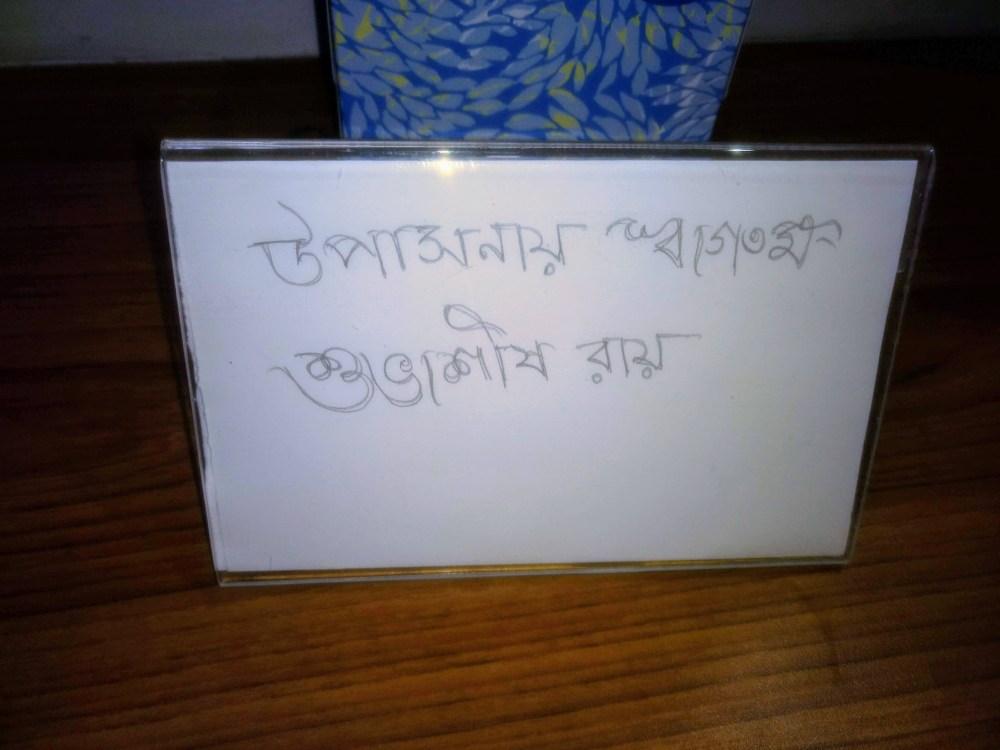 উপাসনায় স্বাগতম
শুভাশীষ রায়